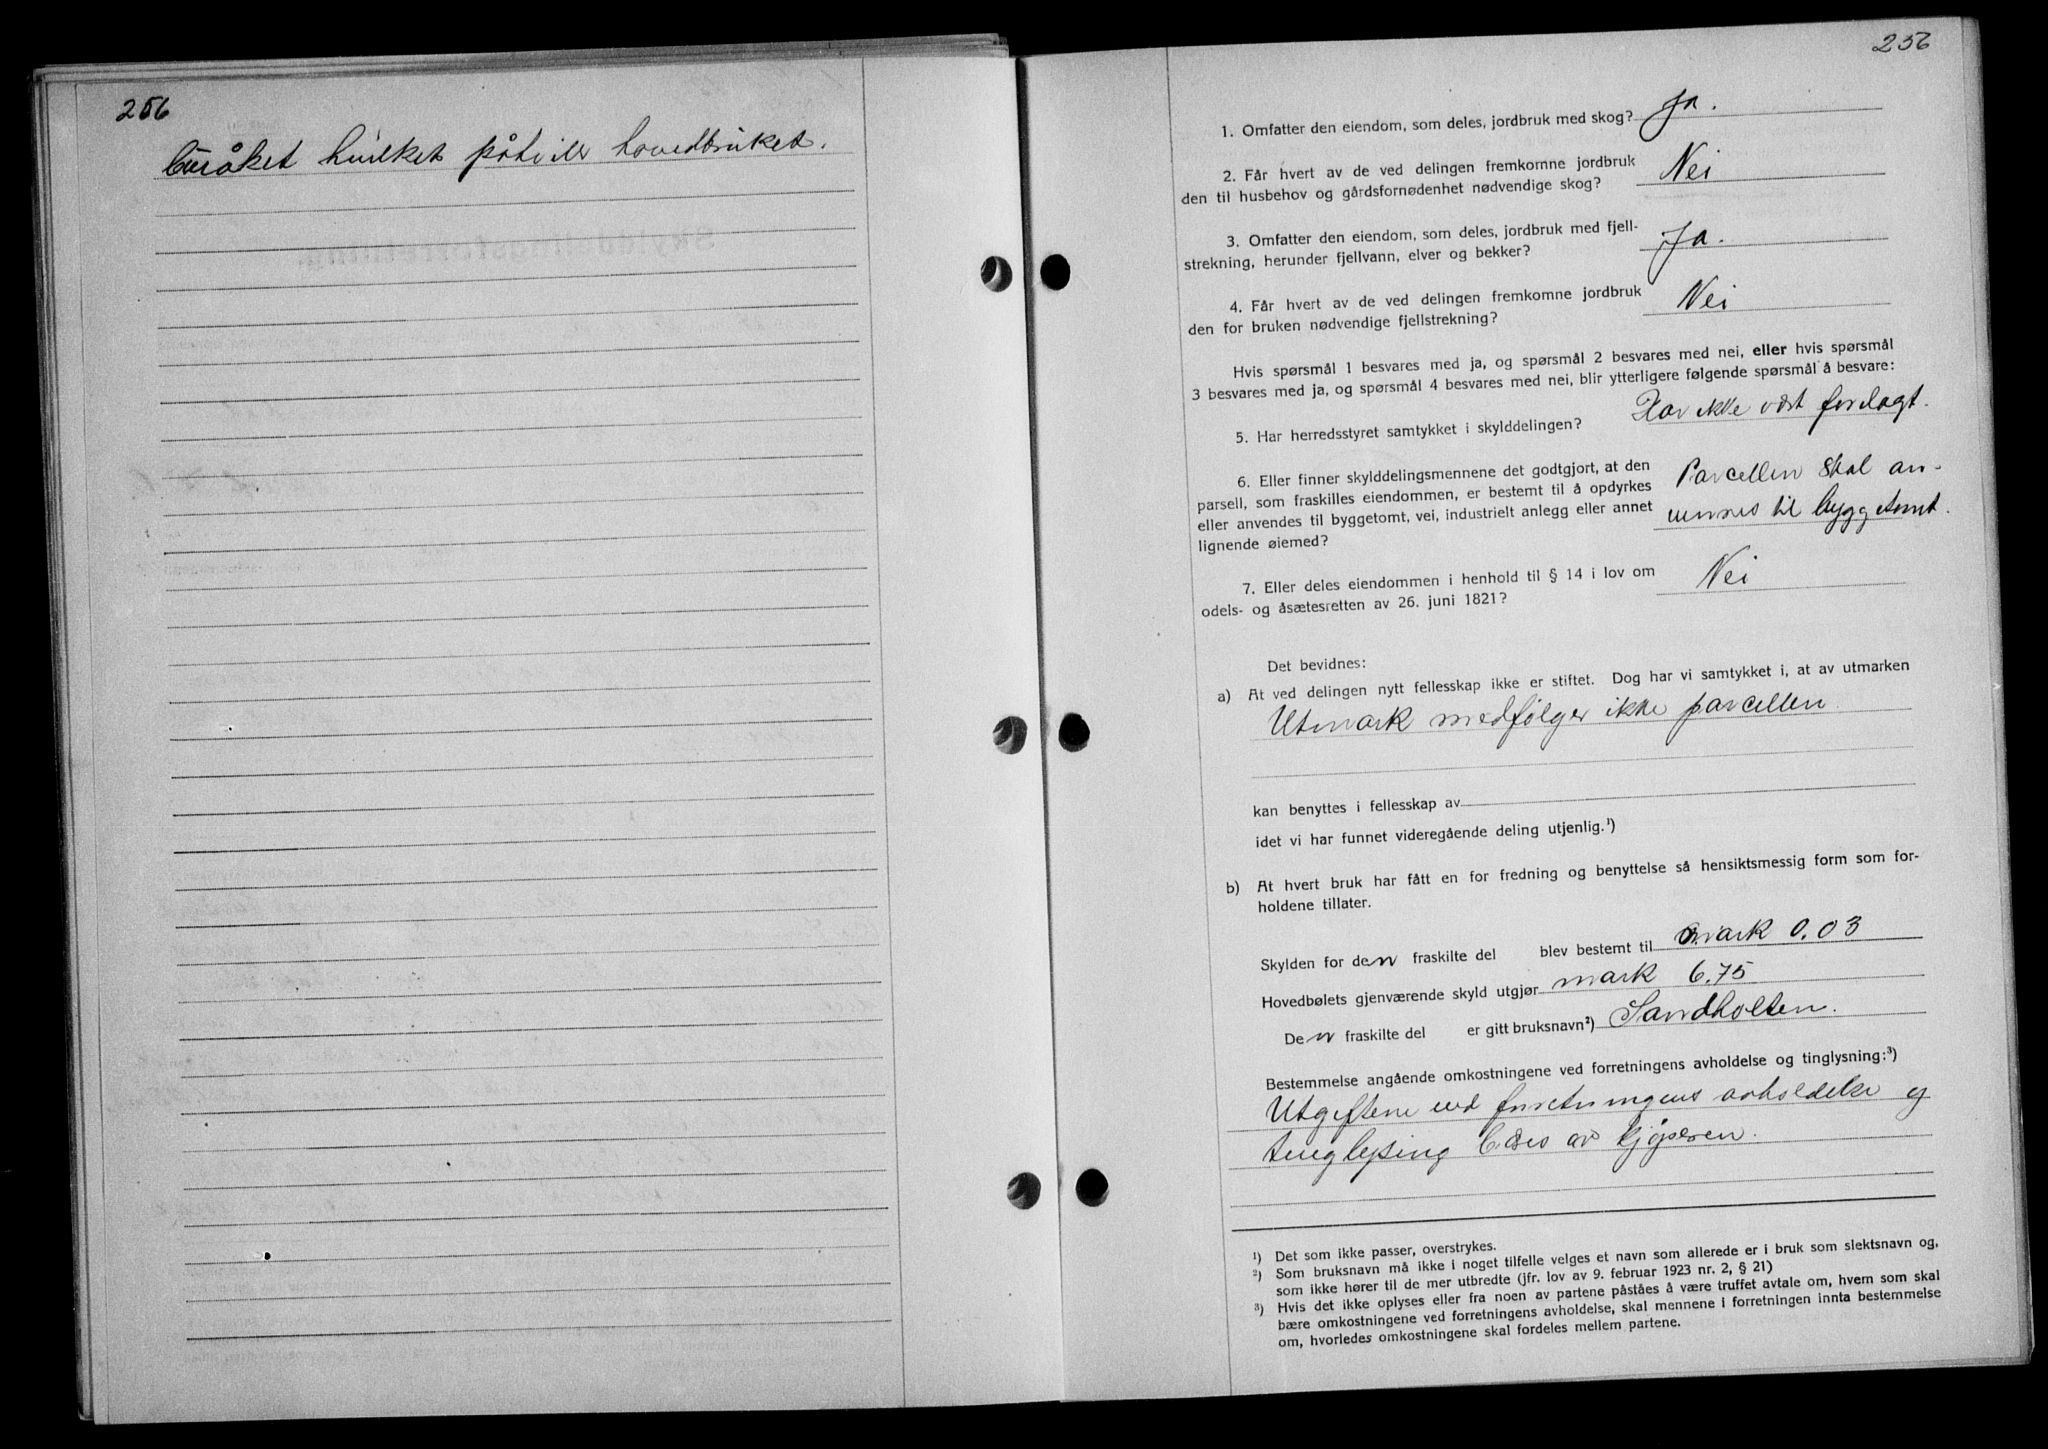 256
bruket hvilket påhviler hovedbruket.
256
1. Omfatter den eiendom, som deles, jordbruk med skog? Ja.
2. Får hvert av de ved delingen fremkomne jordbruk
den til husbehov og gårdsfornødenhet nødvendige skog? Nei
3. Omfatter den eiendom, som deles, jordbruk med fjell-
strekning, herunder fjellvann, elver og bekker? Ja.
4. Får hvert av de ved delingen fremkomne jordbruk
den for bruken nødvendige fjellstrekning? Nei
Hvis spørsmål 1 besvares med ja, og spørsmål 2 besvares med nei, eller hvis spørsmål
3 besvares med ja, og spørsmål 4 besvares med nei, blir ytterligere følgende spørsmål å besvare:
5. Har herredsstyret samtykket i skylddelingen? Har ikke vært forelagt.
6. Eller finner skylddelingsmennene det godtgjort, at den
parsell, som fraskilles eiendommen, er bestemt til å opdyrkes Parcellen skal an-
eller anvendes til byggetomt, vei, industrielt anlegg eller annet vennes til byggetomt.
lignende øiemed?
7. Eller deles eiendommen i henhold til § 14 i lov om
odels- og åsætesretten av 26. juni 1821? Nei
Det bevidnes:
a) At ved delingen nytt fellesskap ikke er stiftet. Dog har vi samtykket i, at av utmarken
Utmark medfølger ikke parcellen.
kan benyttes i fellesskap av
idet vi har funnet videregående deling utjenlig.¹)
b) At hvert bruk har fått en for fredning og benyttelse så hensiktsmessig form som for-
holdene tillater.
Skylden for den fraskilte del blev bestemt til mark 0.03
Hovedbølets gjenværende skyld utgjør mark 6,75
Den fraskilte del er gitt bruksnavn²) Sandholten.
Bestemmelse angående omkostningene ved forretningens avholdelse og tinglysning:³)
Utgiftene ved forretningens avholdelse og
tinglysing bæres av kjøperen.
¹) Det som ikke passer, overstrykes.
²) Som bruksnavn må ikke i noget tilfelle velges et navn som allerede er i bruk som slektsnavn og,
som ikke hører til de mer utbredte (jfr. lov av 9. februar 1923 nr. 2, § 21)
³) Hvis det ikke oplyses eller fra noen av partene påståes å være truffet avtale om, hvem som skal
bære omkostningene ved forretningens avholdelse, skal mennene i forretningen innta bestemmelse
om, hvorledes omkostningene skal fordeles mellem partene.